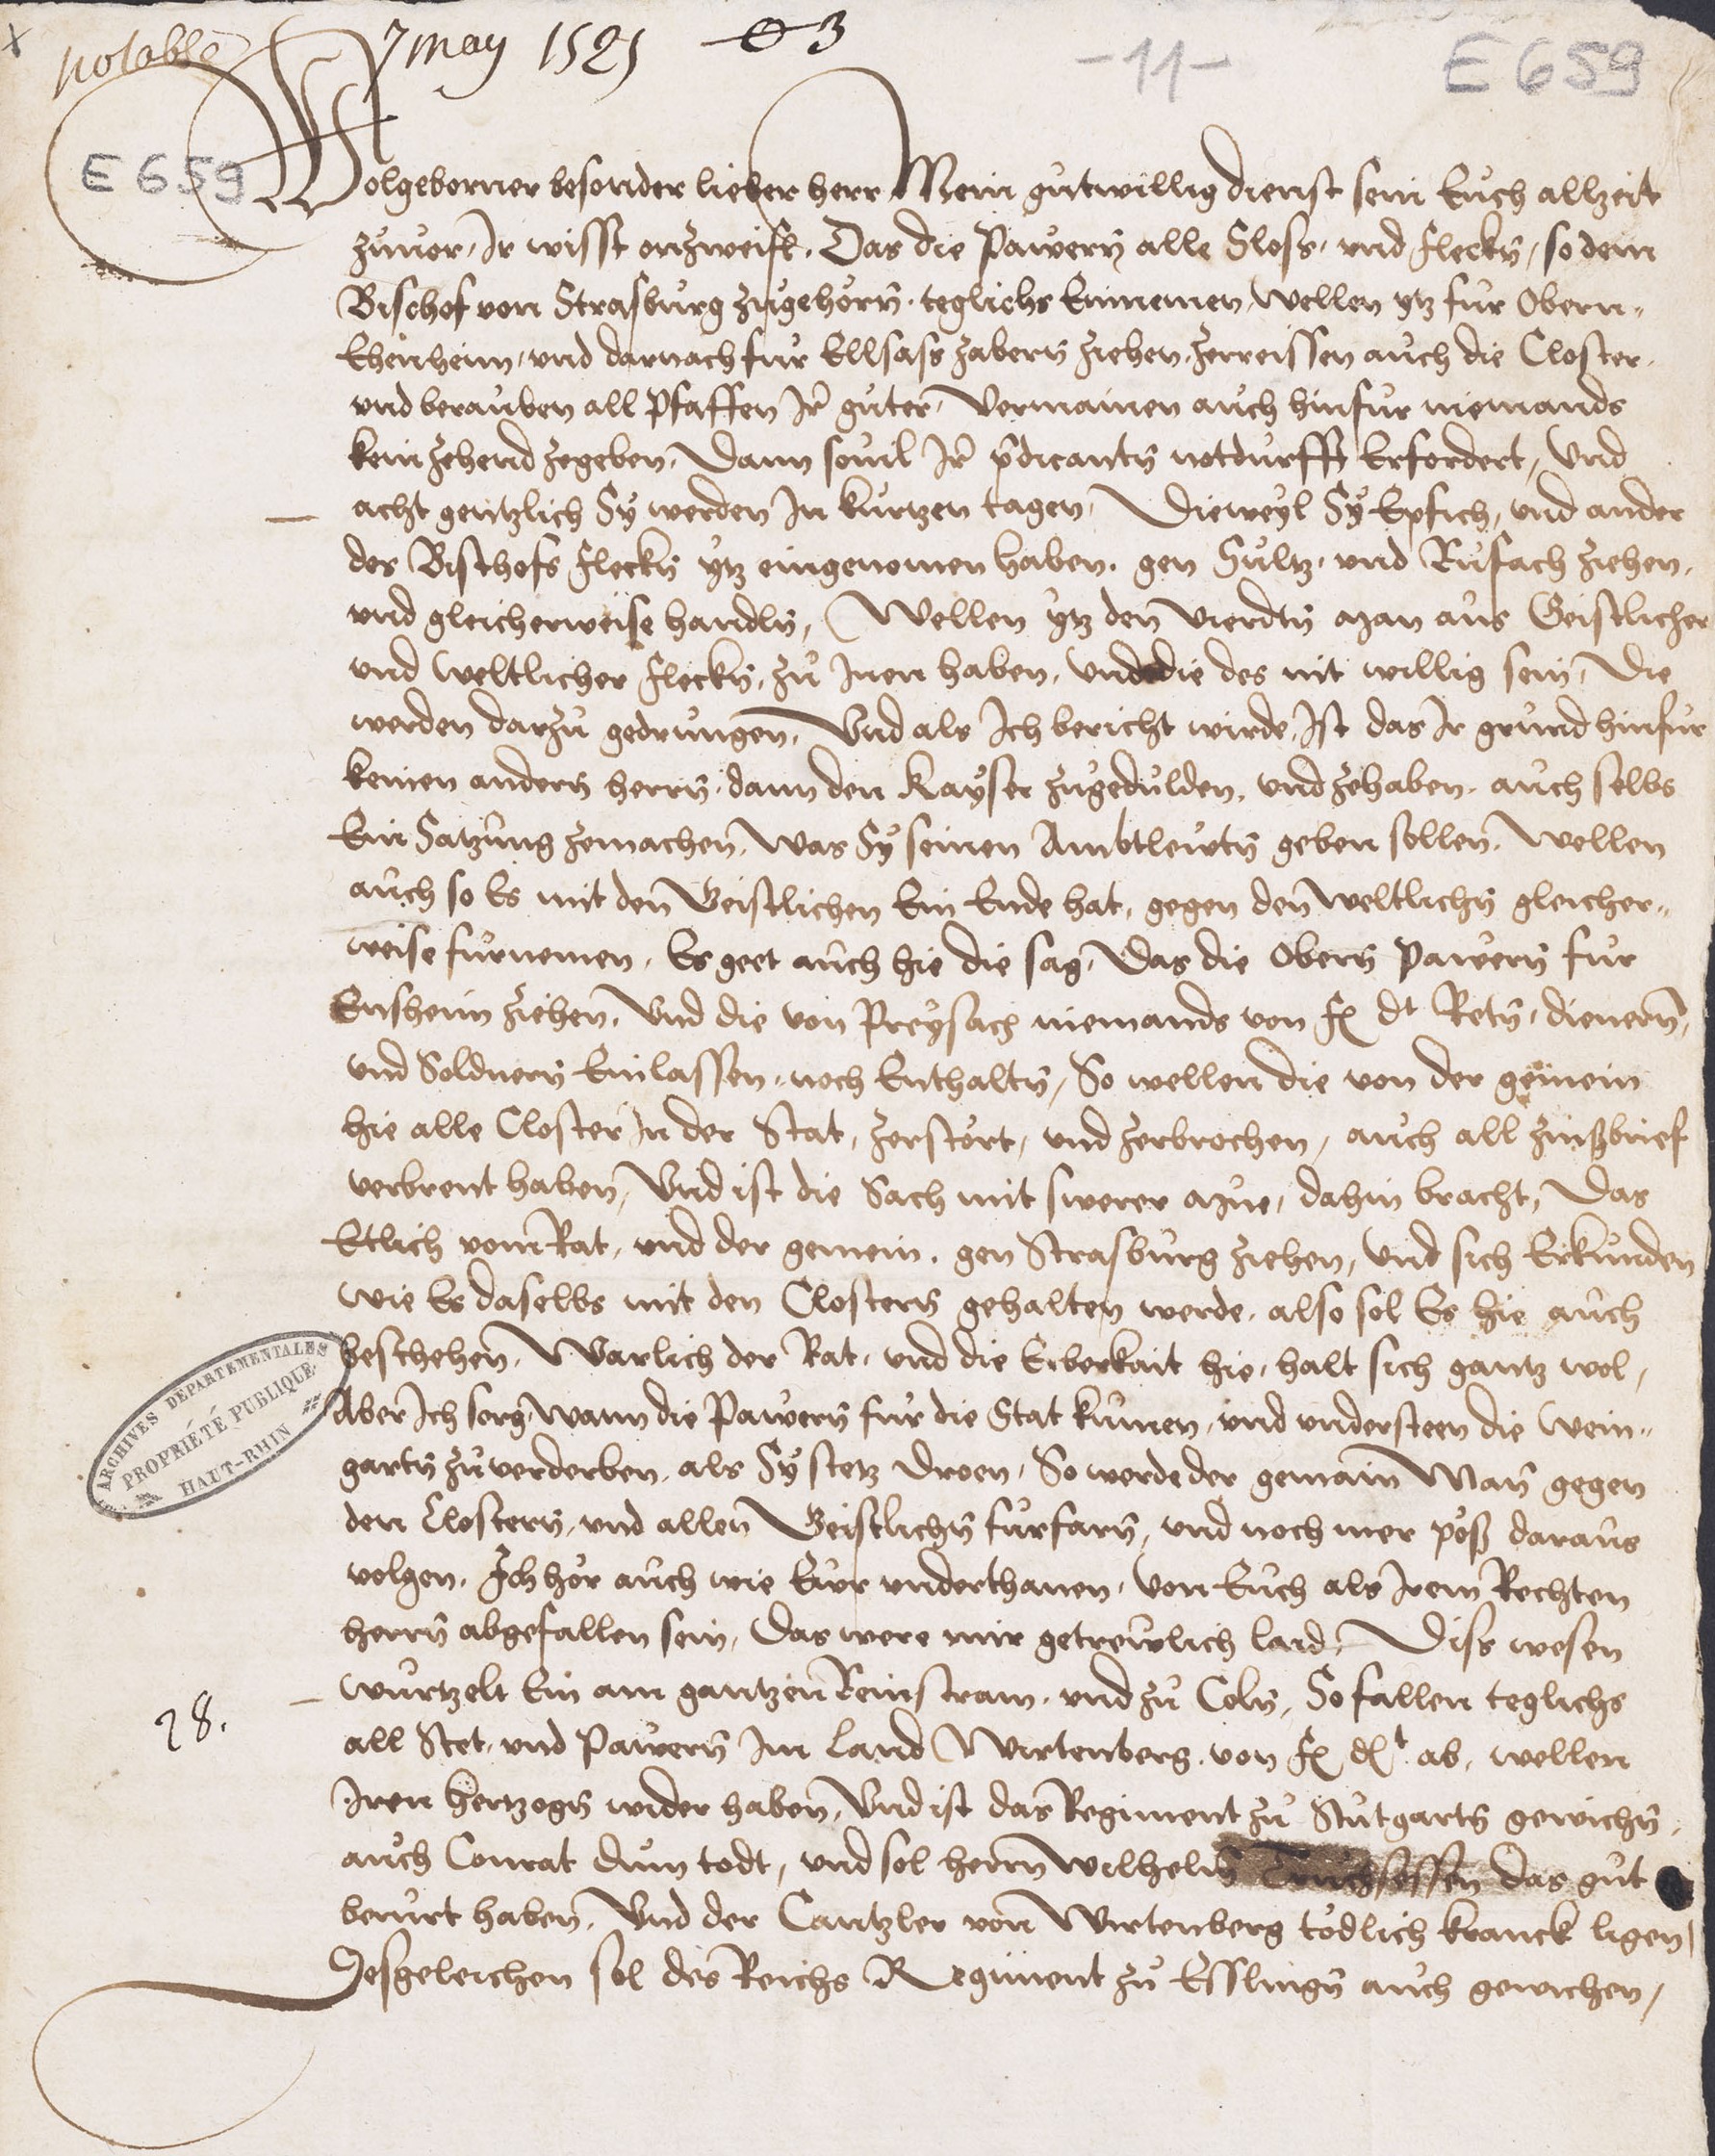 notable 7 may 1525 3
-11- E 659
E 659
Wolgeborner besonder lieber herr Mein gutwillig dienst sein Euch allzeit
zuuor, Ir wisst onzweifl. Das die Pawern alle Sloss, vnd fleckn, so dem
Bischof von Strasburg zugehorn, teglichs Einnemen, wellen ytz fur Obern„
Ehenheim, vnd darnach fur Ellsass zabern ziehen, zerreissen auch die Closter,
vnd berauben all pfaffen Ir guter, Vermainen auch hinfur niemands
kein zehend zegeben, Dann souil Ir predicantn notdurfft Erfordert, Vnd
acht gentzlich Sy werden In kurtzen tagen, Dieweyl Sy Epfich, vnd ander
des Bischofs fleckn ytz eingenomen haben, gen Sultz, vnd Rufach ziehen,
vnd gleicherweise handln, Wellen ytz den vierdtn man aus Geistlicher
vnd weltlicher fleckn, zu Inen haben, vnd die des nit willig sein, Die
werden darzu gedrungen, Vnd als Ich bericht wirde, Ist das Ir grund hinfur
keinen andern herrn, dann den Kayser zugedulden, vnd zehaben, auch selbs
Ein Satzung zemachen, Was Sy seinen Ambtlewtn geben sollen, Wellen
auch so Es mit den Geistlichen Ein Ende hat, gegen den weltlichn gleicher„
weise furnemen, Es geet auch hie die sag, Das die Obern Pawern fur
Ensheim ziehen, Vnd die von Preysach niemands von f dt Retn, dienern,
vnd Soldnern Einlassen, noch Enthaltn, So wellen die von der gemein
hie alle Closter In der Stat, zerstort, vnd zerbrochen, auch all zinßbrief
verbrent haben, Vnd ist die Sach mit swerer mue, dahin bracht, Das
Etlich vom Rat, vnd der gemein, gen Strasburg ziehen, vnd sich Erkunden
wie Es daselbs mit den Clostern gehalten werde, also sol Es hie auch
beschehen, Warlich der Rat, vnd die Erberkait hie, halt sich gantz wol,
Aber Ich sorg, wann die Pawern fur die Stat kumen, vnd vndersteen die Wein„
gartn zuuerderben, als Sy stetz droen, So werde der gemain Man gegen
den Clostern, vnd allen Geistlichn furfarn, vnd noch mer poß daraus
volgen, Ich hor auch wie Ewr vnderthanen, von Euch als Irem Rechten
herrn abgefallen sein, Das were mir getrewlich laid, Diss wesen
wurtzelt Ein am gantzen Reinstram, vnd zu Coln, So fallen teglichs
28.
all Stet, vnd Pawern Im Land Wirtenberg, von f dt ab, wellen
Iren hertzogn wider haben, Vnd ist das Regiment zu Stutgartn gewichn,
auch Conrat dum todt, vnd sol herrn Wilhelm Truchsessen das gut
berurt haben, Vnd der Cantzler von Wirtenberg todlich kranck ligen,
Desgeleichen sol des Reichs Regiment zu Esslingn auch gewichen,
ARCHIVES DEPARTEMENTALES
PROPRIÉTÉ PUBLIQUE
HAUT-RHIN